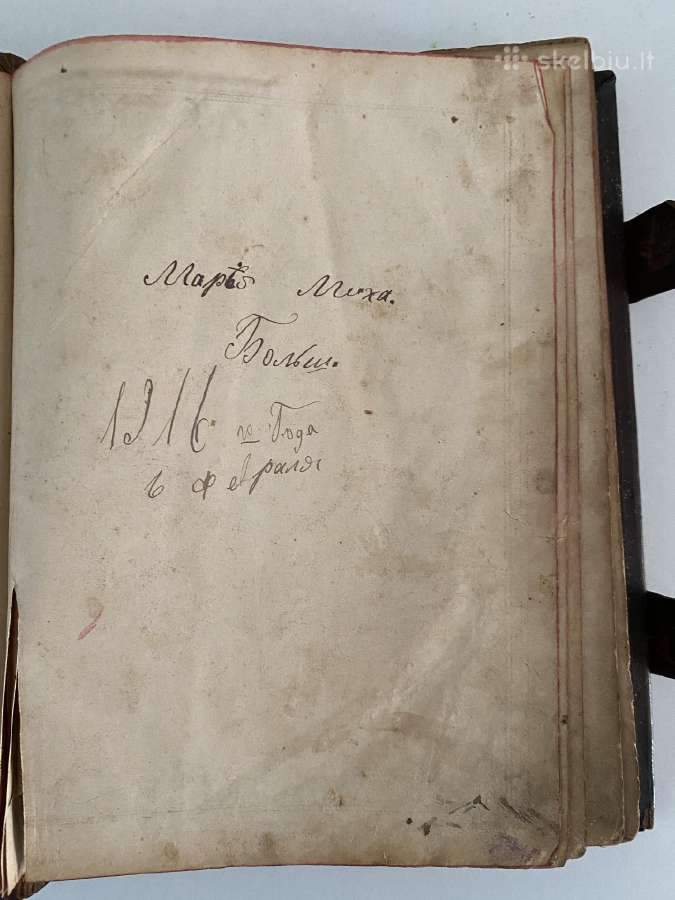 skelbiu.lt
Миха.
Больш.
1916 го Года
6 февраля